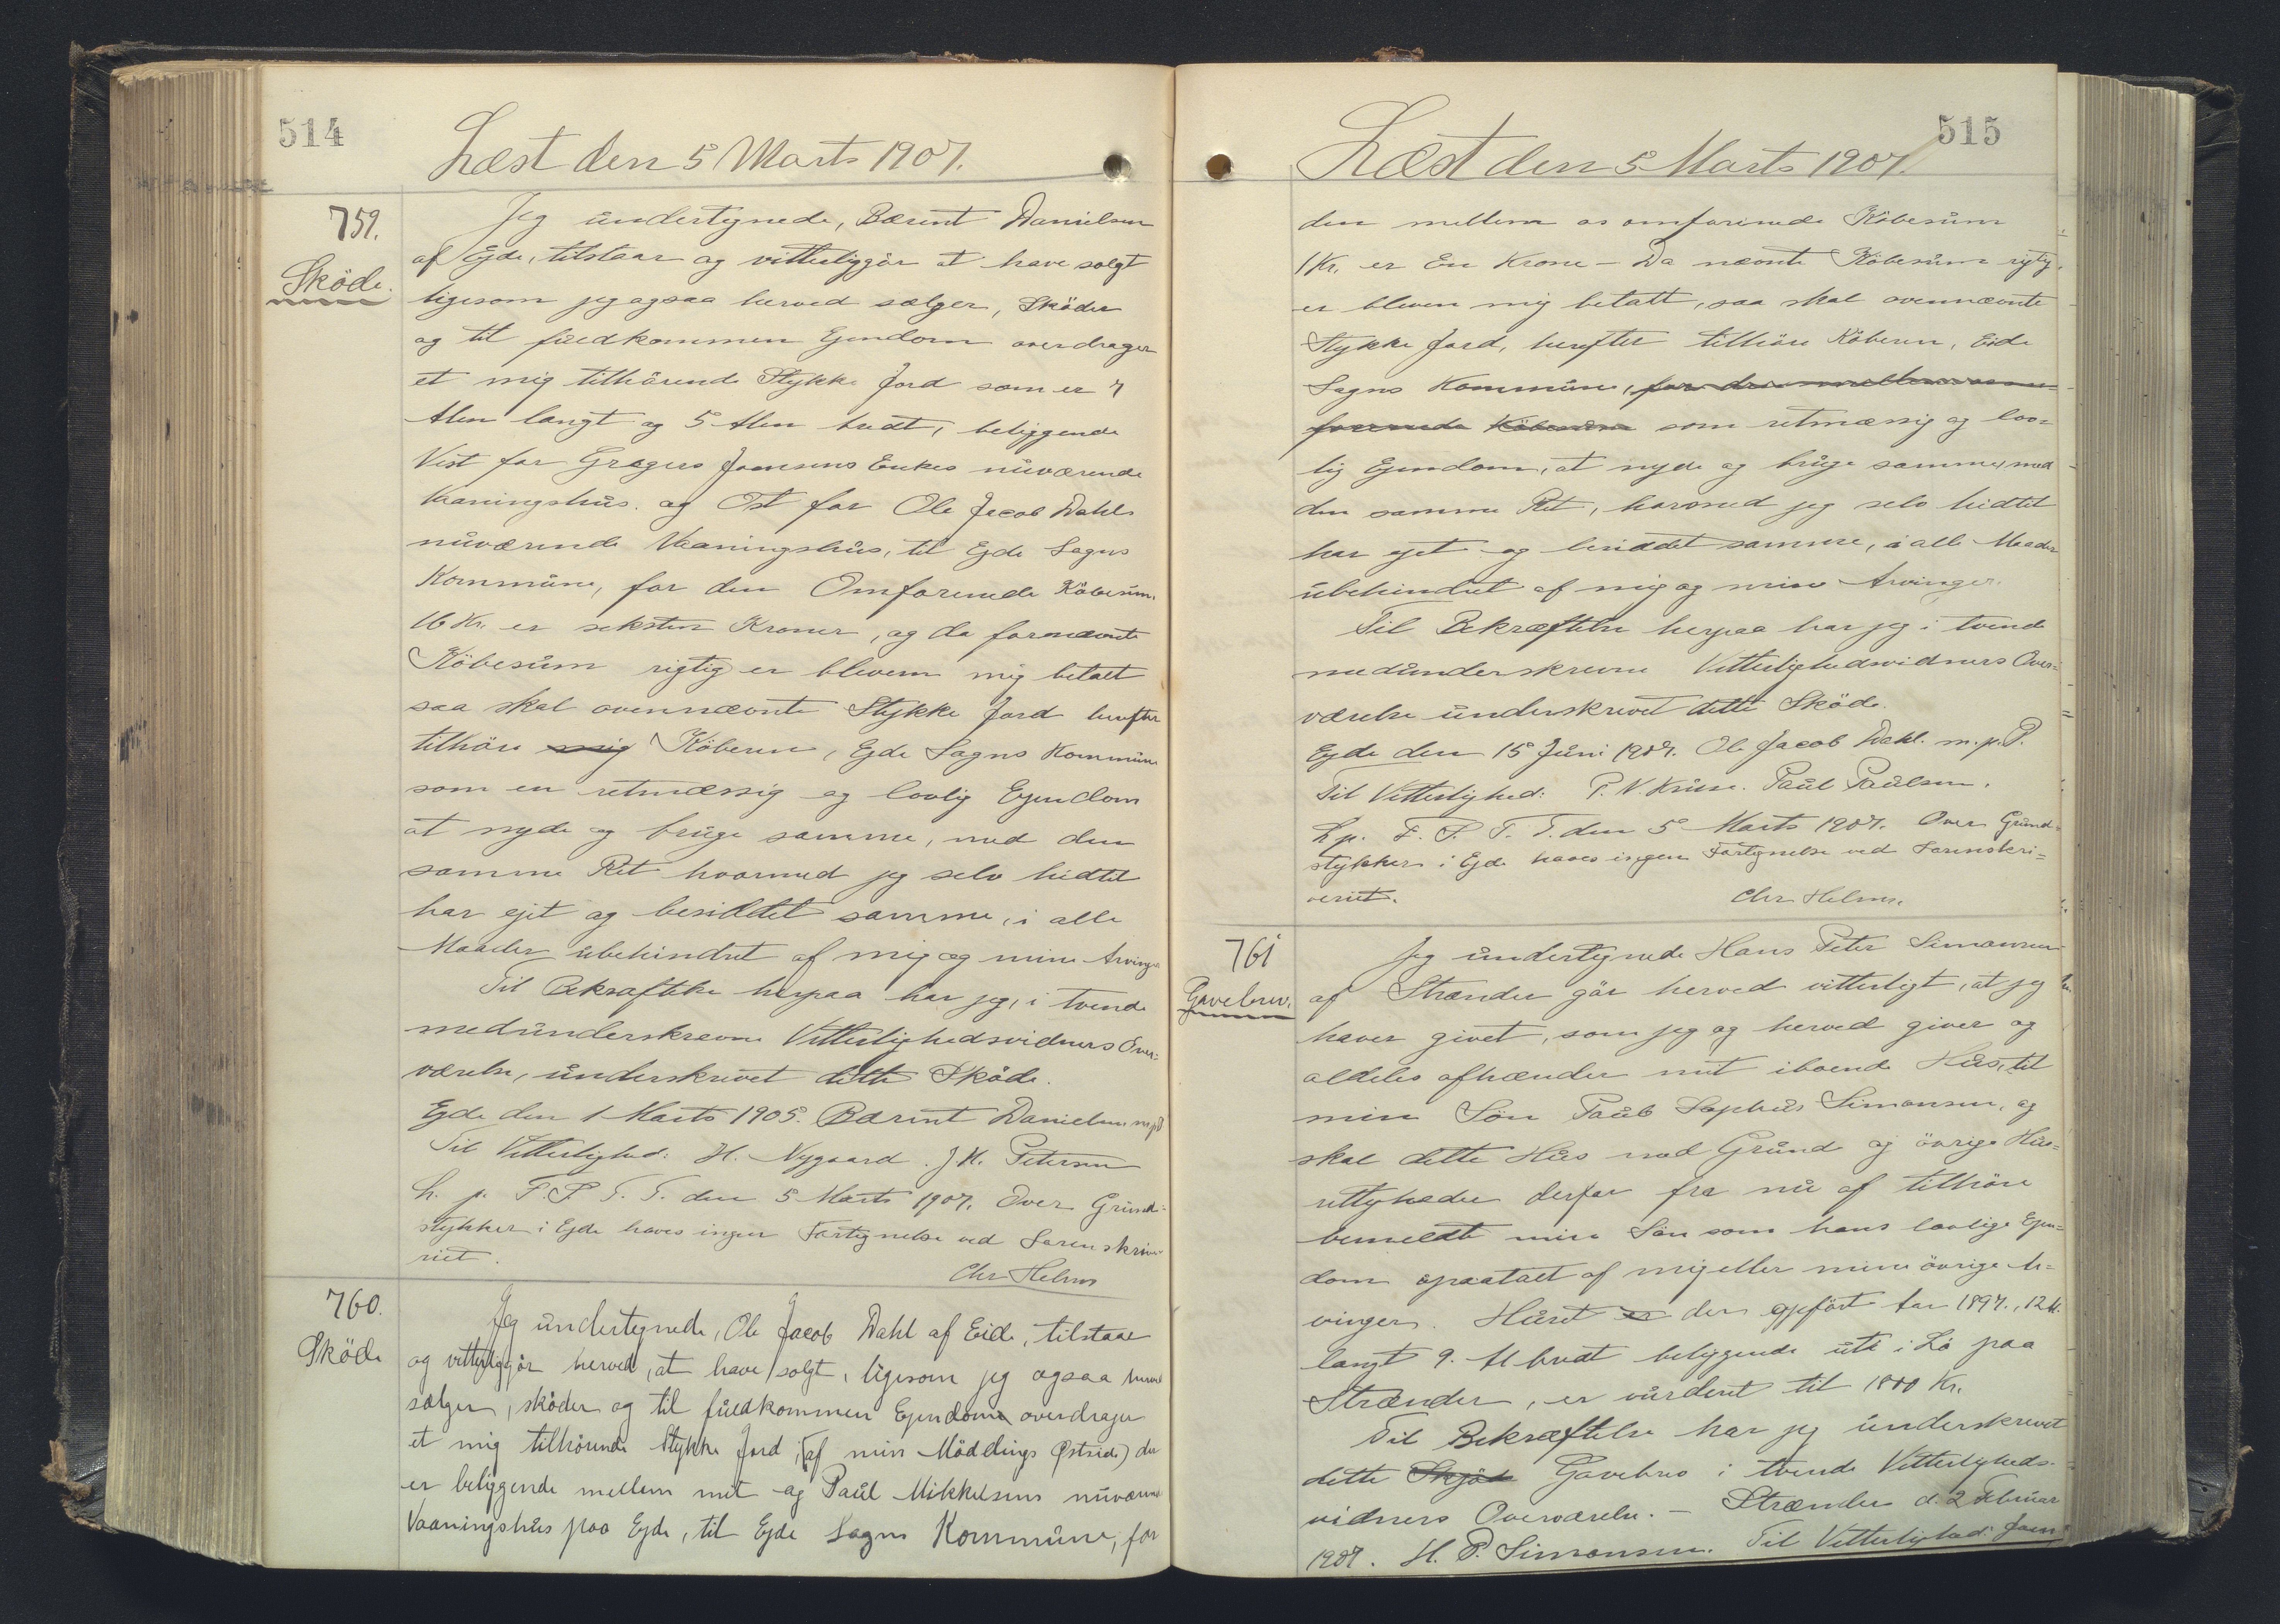 514
Læst den 5 Marts 1907.
759.
Sköde.
Jeg undertegnede, Bærint Danielsen
af Ejde, tilstaar og vitterliggör at have solgt
ligesom jeg ogsaa herved sælger, Sköder
og til fuldkommen Ejendom overdrager
et mig tilhörende Stykke Jord som er 7
Alen langt og 5 Alen bredt, beliggende
Vest for Gregers Joensens Enkes nuværende
Vaaningshus. og Øst for Ole Jacob Dahls
nuværende Vaaningshus, til Ejde Sogns
Kommune, for den Omforenede Köbesum.
16 Kr. er seksten Kroner, og da fornævnte
Köbesum rigtig er bleven mig betalt
saa skal ovennævnte Stykke Jord herefter
tilhöre mig Köberen, Ejde Sogns Kommune
som en retmæssig og lovlig Ejendom
at nyde og bruge samme, med den
samme Ret hvormed jeg selv hidtil
har ejet og besiddet samme, i alle
Maader ubehindret af mig og mine Arvinger
Til Bekræftelse herpaa har jeg, i tvende
medunderskrevne Vitterlighedsvidners Over=
værelse, underskrevet dette Sköde.
Ejde den 1 Marts 1905. Bærint Danielsen m.p.
Til Vitterlighed: H. Nygaard. J K. Petersen
L. p. F. S. T. T. den 5 Marts 1907. Over Grund=
stykker i Ejde haves ingen Fortegnelse ved Sorenskrive
riet.
Chr Helms
760.
Sköde
Jeg undertegnede, Ole Jacob Dahl af Eide, tilstaar
og vitterliggör herved, at have solgt, ligesom jeg ogsaa herved
sælger, sköder og til fuldkommen Ejendom overdrager
et mig tilhörende Stykke Jord, (af min Möddings Østside) der
er beliggende mellem mit og Paul Mikkelsens nuværende
Vaaningshus paa Ejde, til Ejde Sogns Kommune, for
515
Læst den 5 Marts 1907.
den mellem os omforenede Köbesum
1 Kr. er En Krone – Da nævnte Köbesum rigtig
er bleven mig betalt, saa skal ovennævnte
Stykke Jord, herefter tilhöre Köberen, Eide
Sogns Kommune, for den mellem os om=
forenede Köbesum som retmæssig og lov=
lig Ejendom, at nyde og bruge samme, med
den samme Ret, hvormed jeg selv hidtil
har ejet og besiddet samme, i alle Maader
ubehindret af mig og mine Arvinger.
Til Bekræftelse herpaa har jeg i tvende
medunderskrevne Vitterlighedsvidners Over=
værelse underskrevet dette Sköde.
Ejde den 15 Juni 1904. Ole Jacob Dahl. m. p. P.
Til Vitterlighed: P. N. Kruse. Paul Paulsen.
L p. F. S. T. T. den 5 Marts 1907. Over Grund=
stykker i Ejde haves ingen Fortegnelse ved Sorenskri=
veriet.
Chr Helms.
761
Gavebrev.
Jeg undertegnede Hans Peter Simonsen
af Strænder gör herved vitterligt, at jeg
haver givet, som jeg og herved giver og
aldeles afhænder mit iboende Hus, til
min Sön Poul Sophus Simonsen, og
skal dette Hus med Grund og övrige Hus=
rettigheder derfor fra nu af tilhöre
bemeldte min Sön som hans lovlige Ejen=
dom upaatalt af mig eller mine övrige Ar=
vinger. Huset er der opfört Aar 1897., 12 Al.
langt 9. Al bredt beliggende ute i Lö paa
Strænder, er vurderet til 1800 Kr.
Til Bekræftelse har jeg underskrevet
dette Skjöde Gavebrev i tvende Vitterligheds=
vidners Overværelse. – Strænder d. 2 Februar
1907. H. P. Simonsen. Til Vitterlighed: Joen